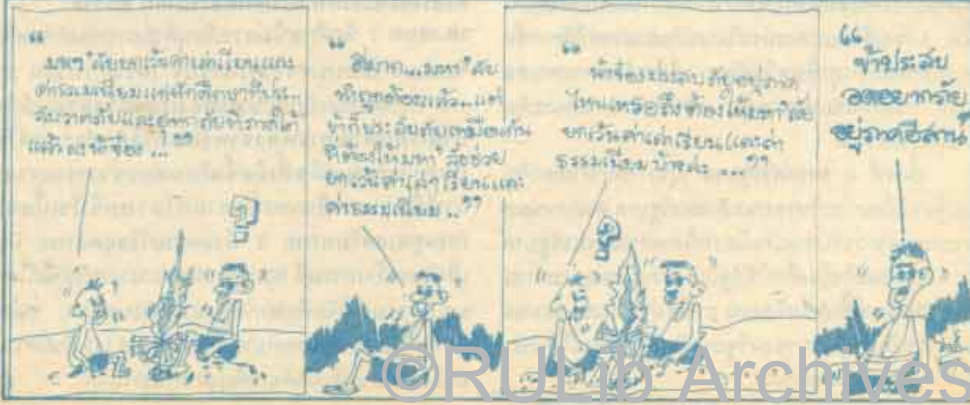 “
มหา'ลัยยกเว้นค่าเล่าเรียนและ
ค่าธรรมเนียมแก่นักศึกษาที่ประ...
สบวาตภัยและอุทกภัยที่ภาคใต้
แล้วล่ะน้าช่อง ...”
“
ดีมาก...มหา'ลัย
ทำถูกต้องแล้ว... แต่
ข้าก็ประสบภัยเหมือนกัน
ที่ต้องให้มหา'ลัยช่วย
ยกเว้นค่าเล่าเรียนและ
ค่าธรรมเนียม..”
“
ประสบภัยอยู่ภาค
ไหนเหรอถึงต้องให้มหา'ลัย
ยกเว้นค่าเล่าเรียนและค่า
ธรรมเนียมบ้างล่ะ ...”
?
“
ข้าประสบ
อดอยากภัย
อยู่ภาคอีสาน
©RULib Archives